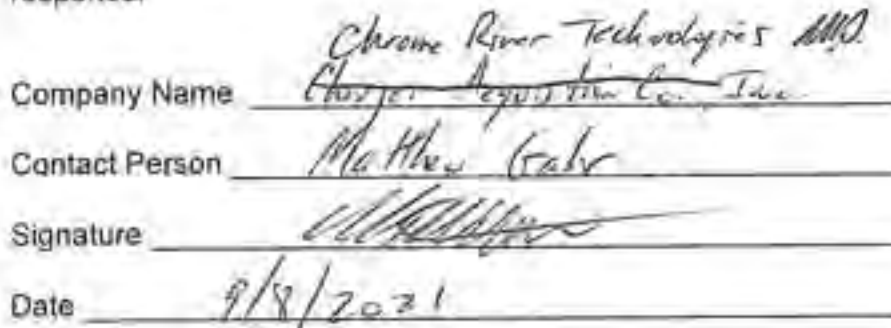 Chrome River Technologies
Company Name Acquisition Co. Inc.
Contact Person Matthew
Signature
Date 9/8/2021